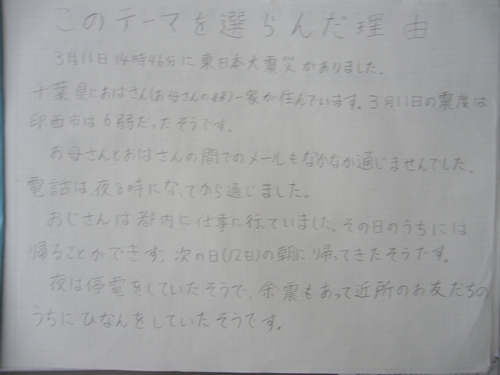 このテーマを選らんだ理由
3月11日14時46分に東日本大震災がありました。
千葉県におばさん(お母さんの妹)一家が住んでいます。3月11日の震度は
印西市は6弱だったそうです。
お母さんとおばさんの間でのメールもなかなか通じませんでした。
電話は、夜8時になってから通じました。
おじさんは都内に仕事に行っていました。その日のうちには
帰ることができず、次の日(12日)の朝に帰ってきたそうです。
夜は停電をしていたそうで、余震もあって近所のお友だちの
うちにひなんをしていたそうです。